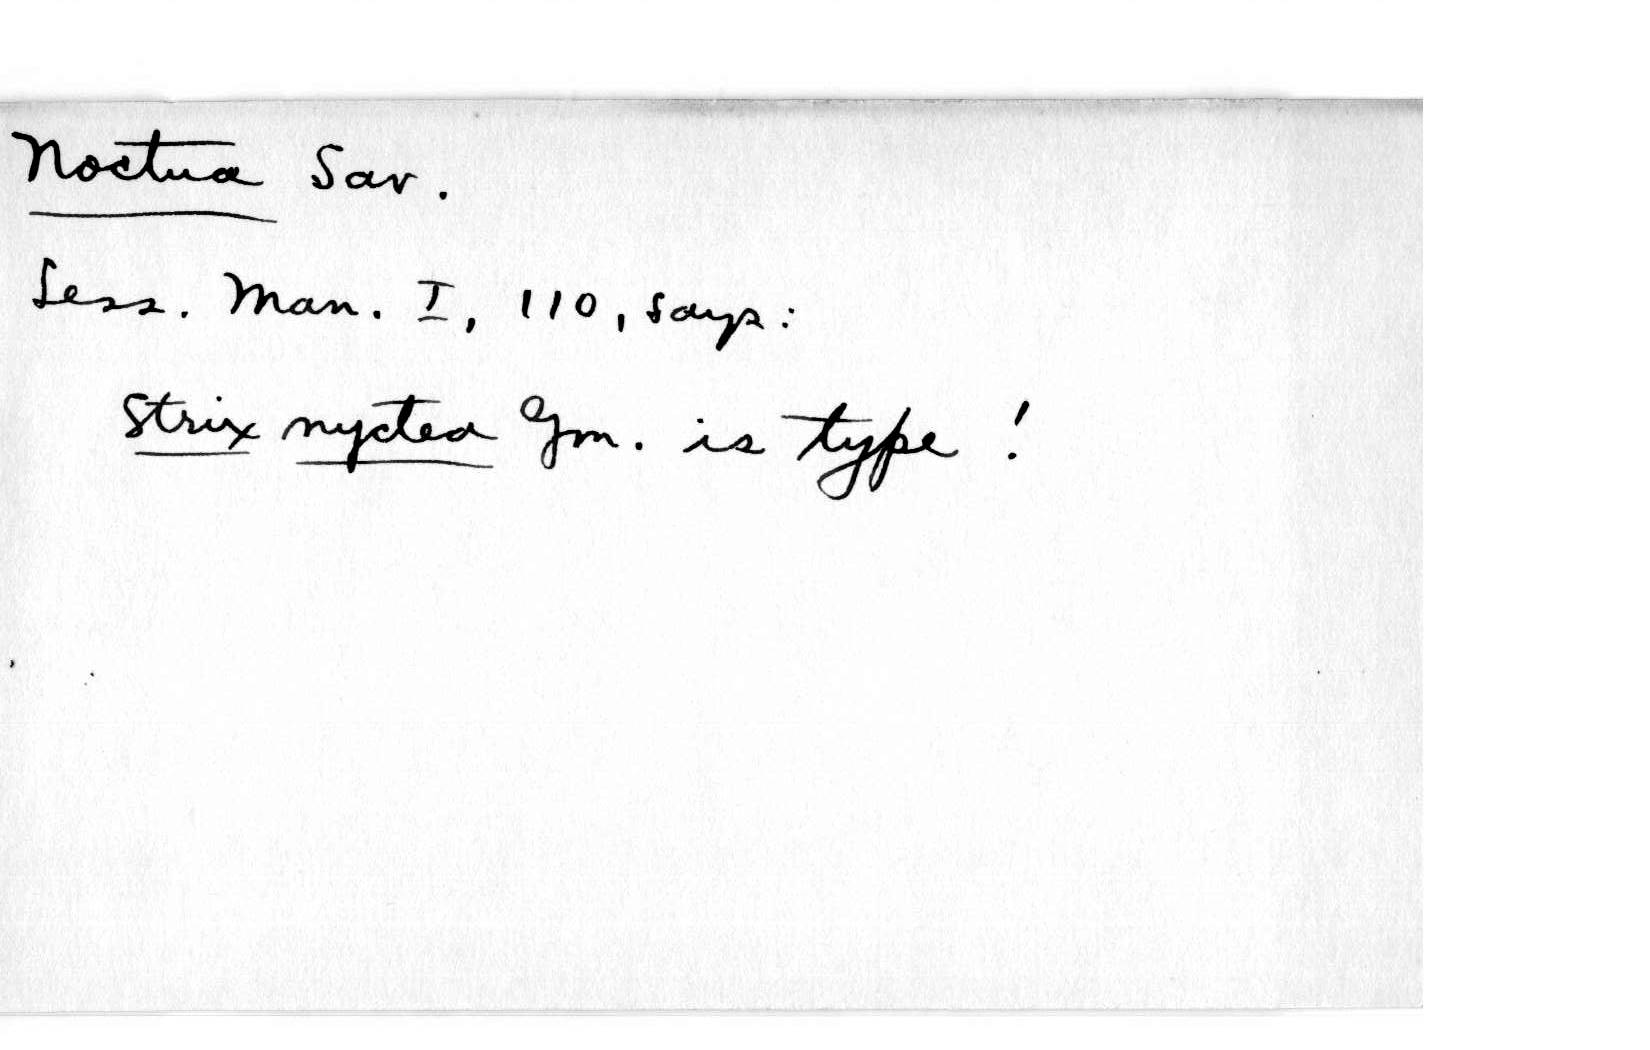 Noctua Sav.
Less. Man. I, 110, says:
Strix nyctea Gm. is type!